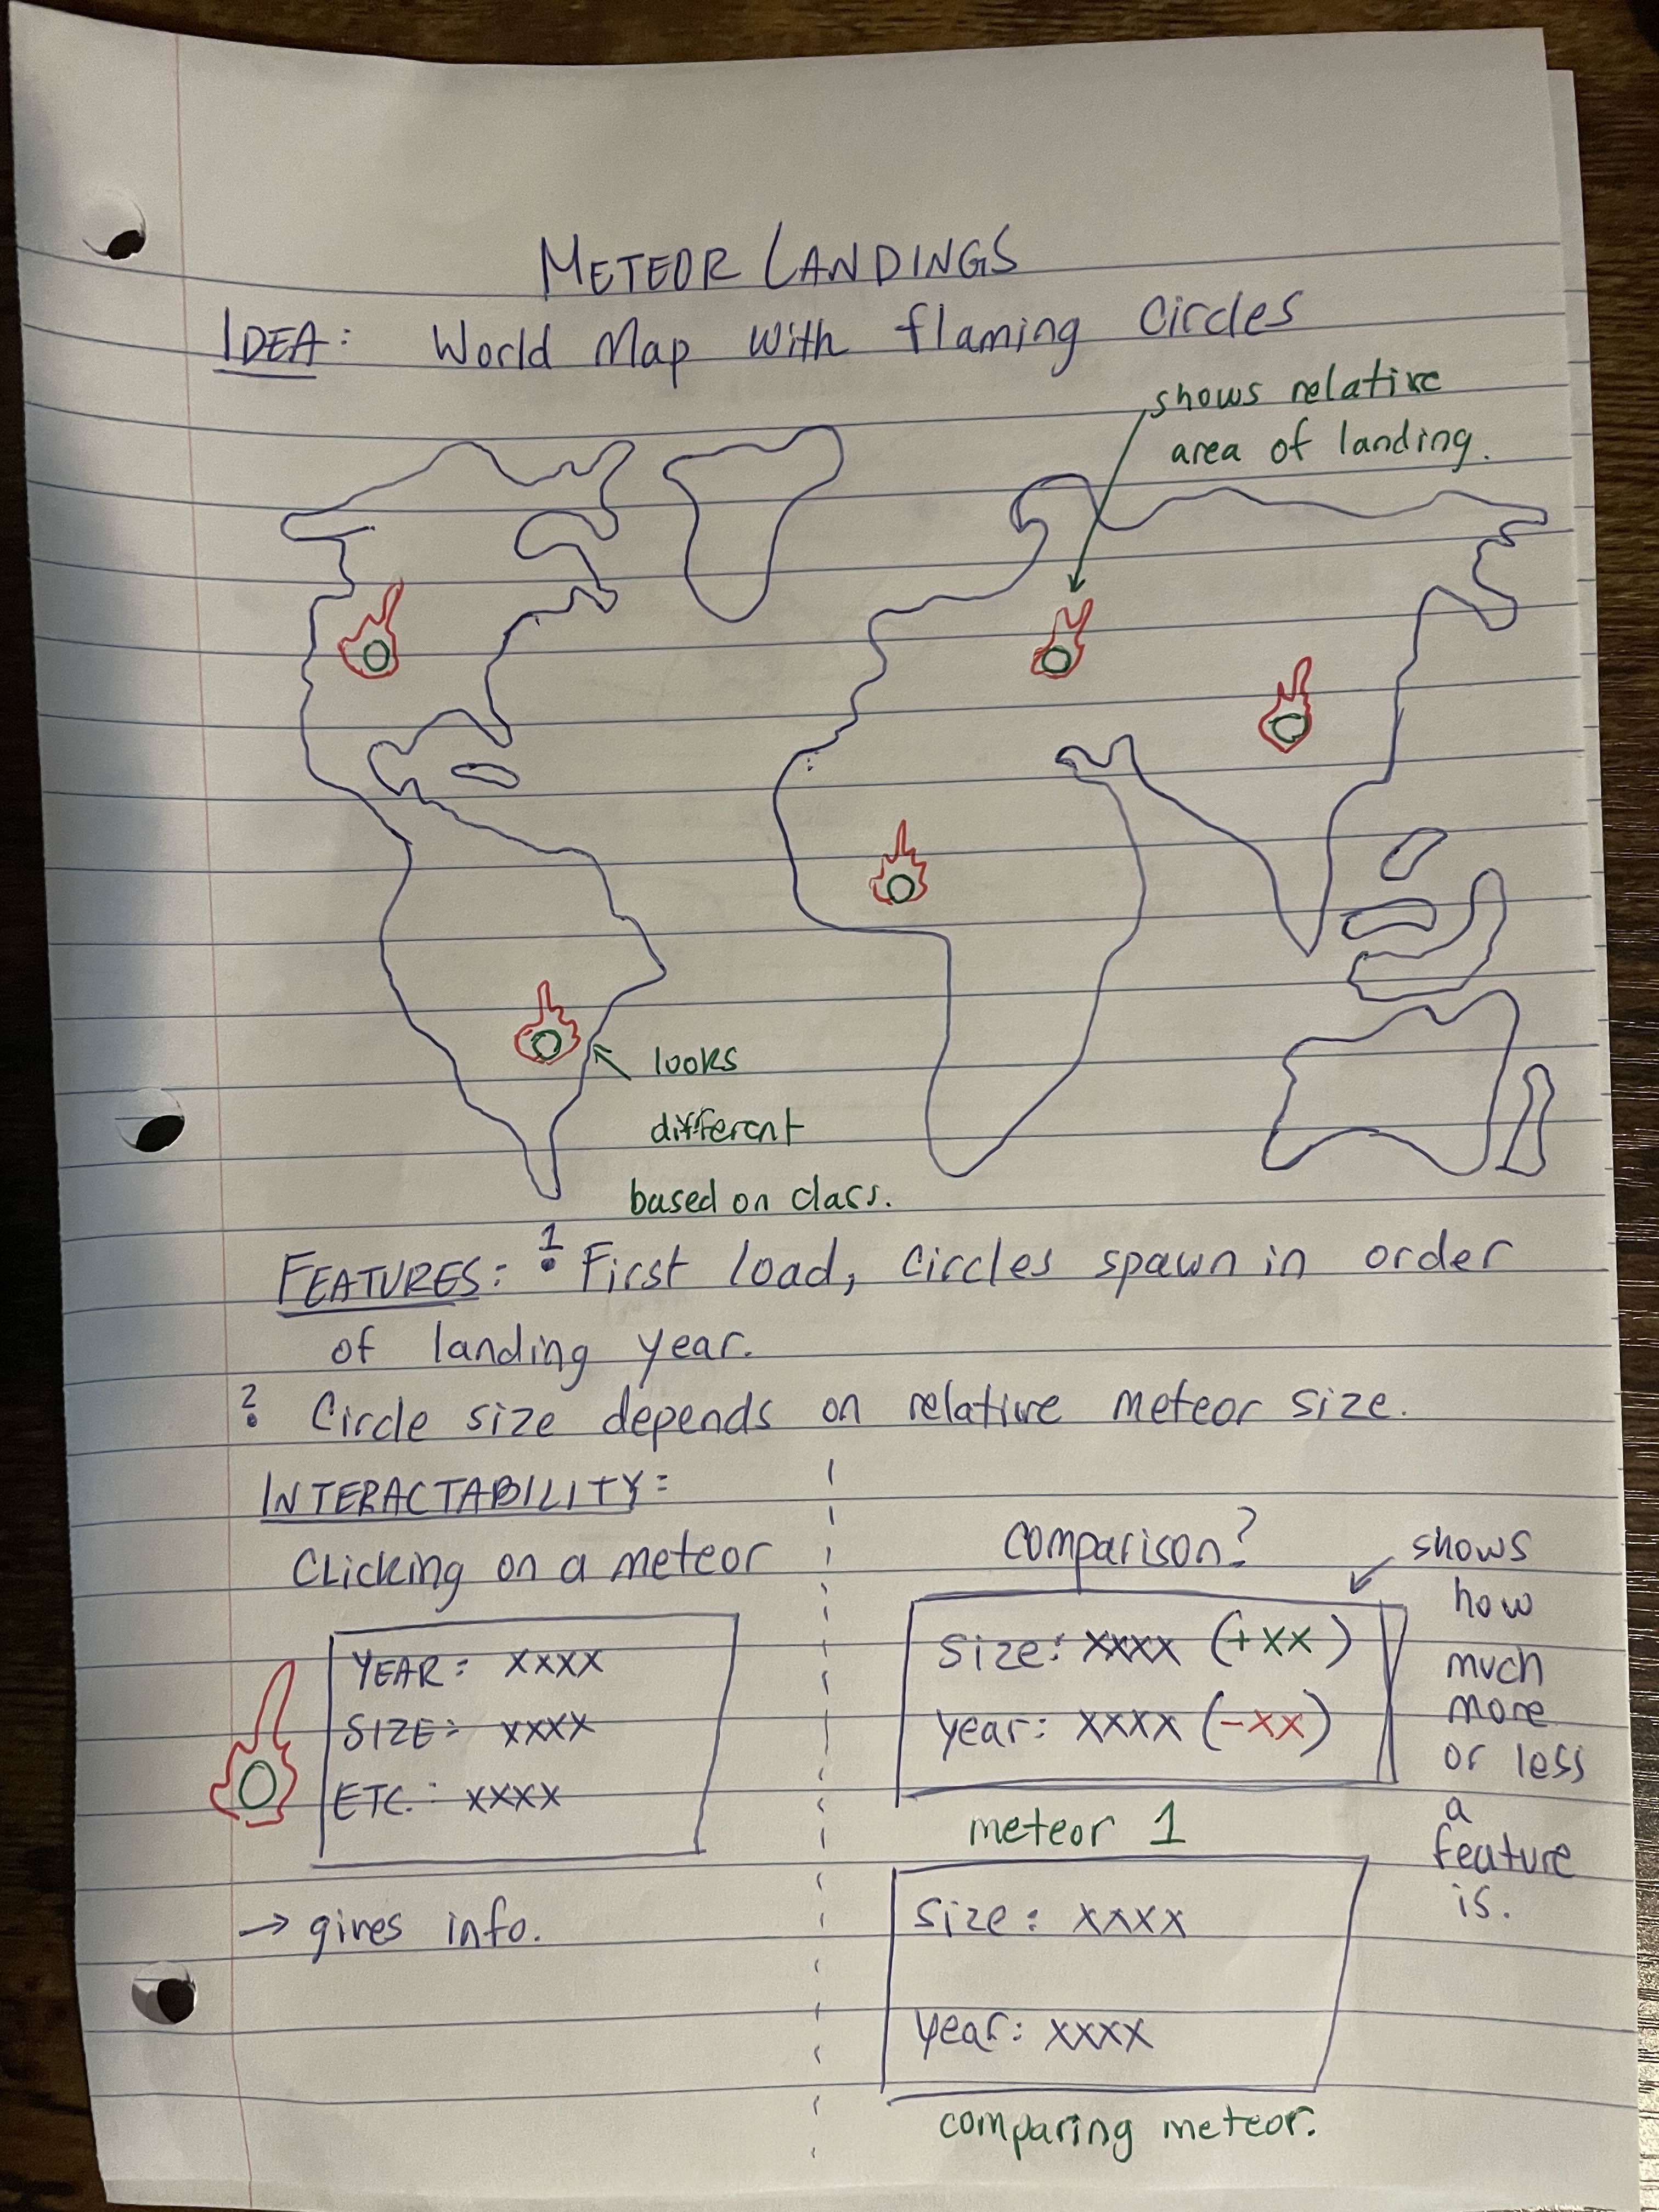 METEOR LANDINGS
IDEA: World Map With flaming Circles
shows relative
area of landing.
looks
different
based on class.
FEATURES: 1. First load, circles spawn in order
of landing year.
2. Circle size depends on relative meteor size.
INTERACTABILITY:
Clicking on a meteor
YEAR: XXXX
SIZE: XXXX
ETC.: XXXX
→ gives info.
Comparison?
Size: XXXX (+XX)
Year: XXXX (-XX)
meteor 1
shows
how
much
more
or less
a
feature
is.
Size: XXXX
Year: XXXX
comparing meteor.